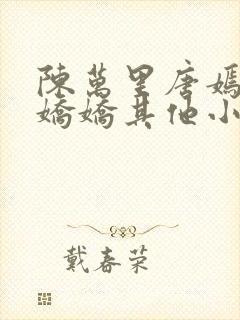 陳萬里唐嫣
嬌嬌其他小
戴春荣